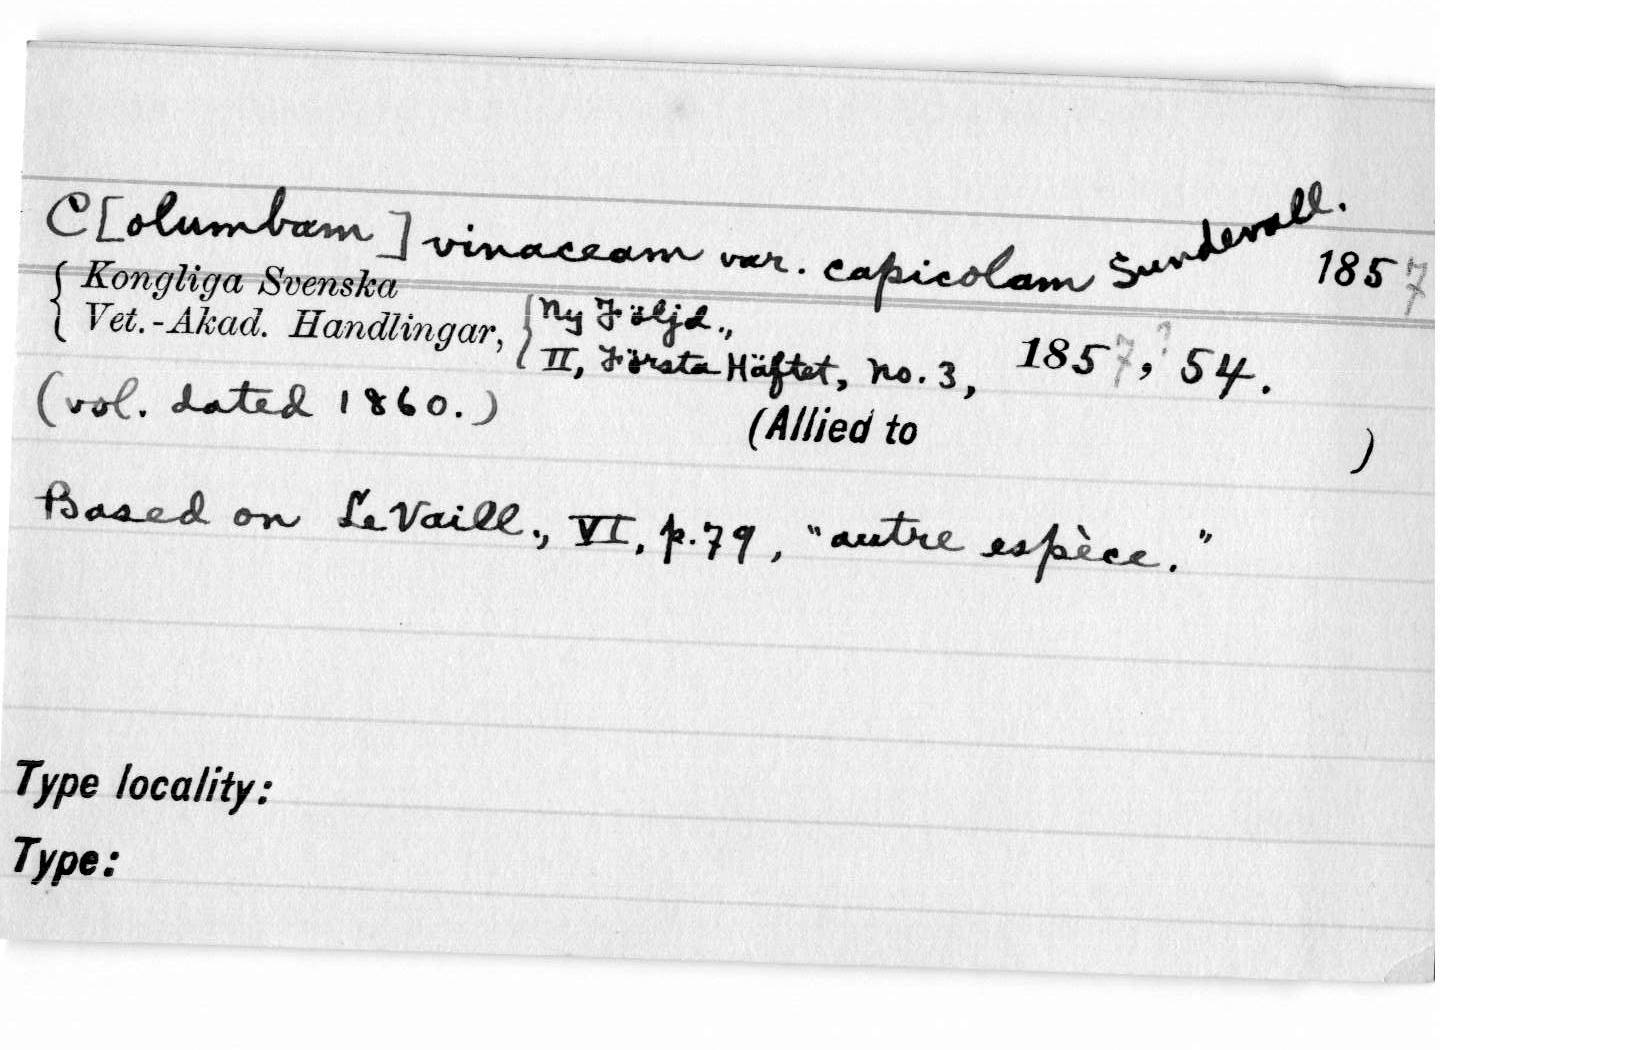 C[olumbam] vinaceam var. capicolam Sundevall. 1857
Kongliga Svenska
Vet.-Akad. Handlingar,
Ny Följd.,
II, Första Häftet, No. 3, 1857,? 54.
(vol. dated 1860.)
(Allied to )
Based on LeVaill., VI, p. 79, "autre espèce."
Type locality:
Type: